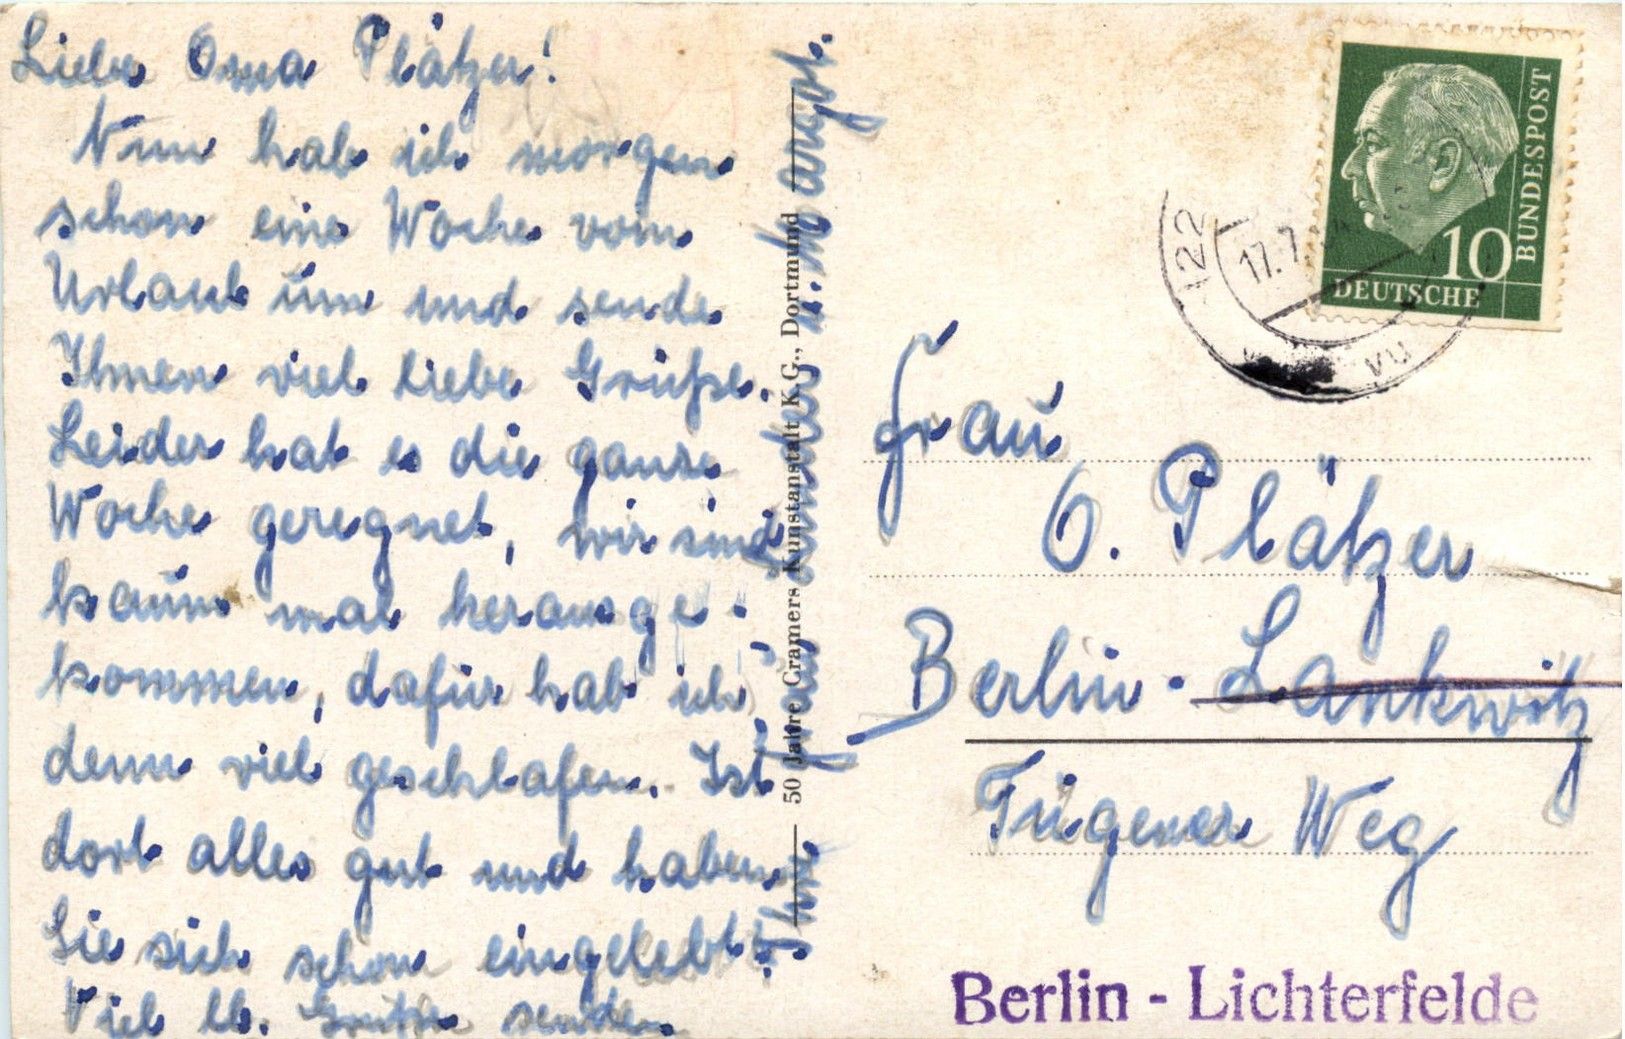 Liebe Oma Plätzer!
Nun hab ich morgen
schon eine Woche vom
Urlaub um und sende
Ihnen viel liebe Grüße.
Leider hat es die ganze
Woche geregnet, wir sind
kaum mal herausge-
kommen, dafür hab ich
denn viel geschlafen. Ist
dort alles gut und haben
Sie sich schon eingelebt?
Viel lb. Grüße senden
u. Margot.
50 Jahre Cramers Kunstanstalt K.G., Dortmund
DEUTSCHE BUNDESPOST
10
17.7.
Frau
O. Plätzer
Berlin - Lankwitz
Weg
Berlin - Lichterfelde